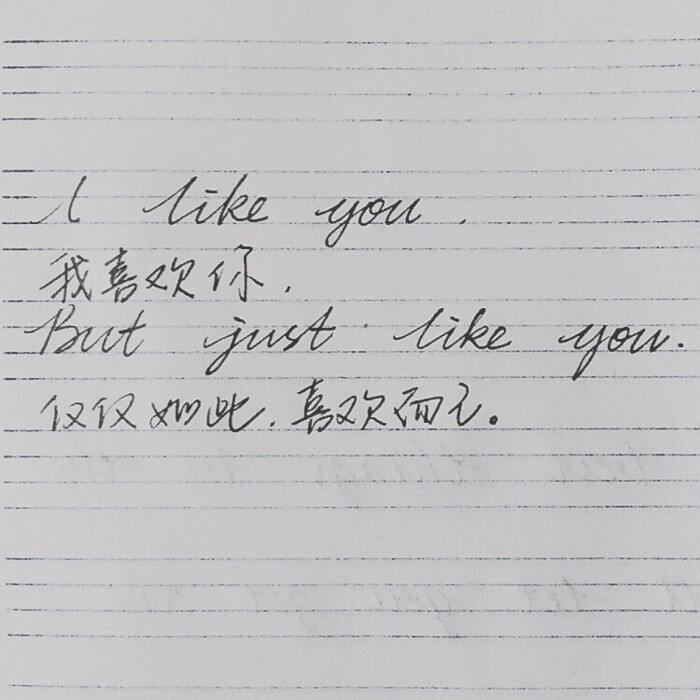 I like you.
我喜欢你.
But just like you.
仅仅如此.喜欢而已。